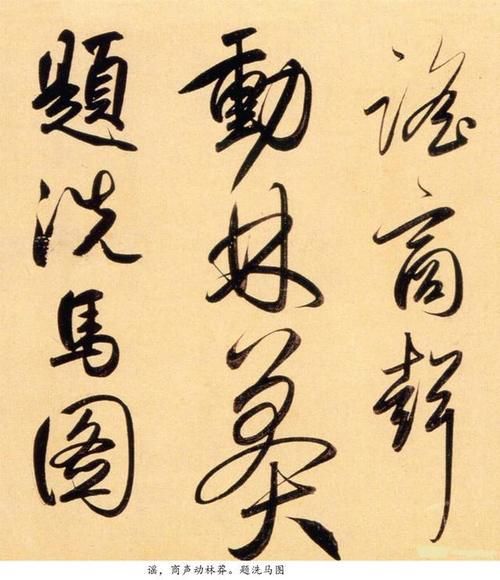 謡商聲
動林莽
題洗馬图
谣，商声动林莽。题洗马图